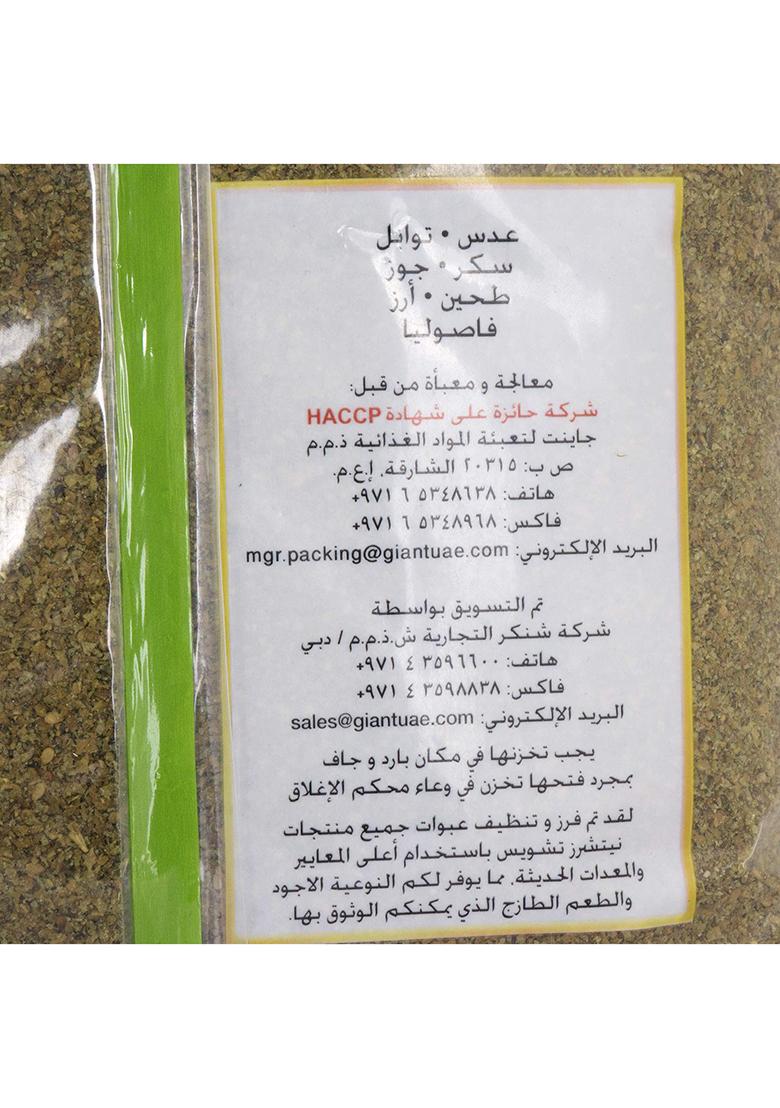 عدس • توابل
سكر • جوز
طحين • أرز
فاصوليا
معالجة و معبأة من قبل:
شركة حائزة على شهادة HACCP
جاينت لتعبئة المواد الغذائية ذ.م.م
ص ب: ٢٠٣١٥ الشارقة, إ.ع.م.
هاتف: ٥٣٤٨٦٣٨ ٦ ٩٧١+
فاكس: ٥٣٤٨٩٦٨ ٦ ٩٧١+
البريد الإلكتروني: mgr.packing@giantuae.com
تم التسويق بواسطة
شركة شنكر التجارية ش.ذ.م.م / دبي
هاتف: ٣٥٩٦٦٠٠ ٤ ٩٧١+
فاكس: ٣٥٩٨٨٣٨ ٤ ٩٧١+
البريد الإلكتروني: sales@giantuae.com
يجب تخزنها في مكان بارد و جاف
بمجرد فتحها تخزن في وعاء محكم الإغلاق
لقد تم فرز و تنظيف عبوات جميع منتجات
نيتشرز تشويس باستخدام أعلى المعايير
والمعدات الحديثة, مما يوفر لكم النوعية الاجود
والطعم الطازج الذي يمكنكم الوثوق بها.